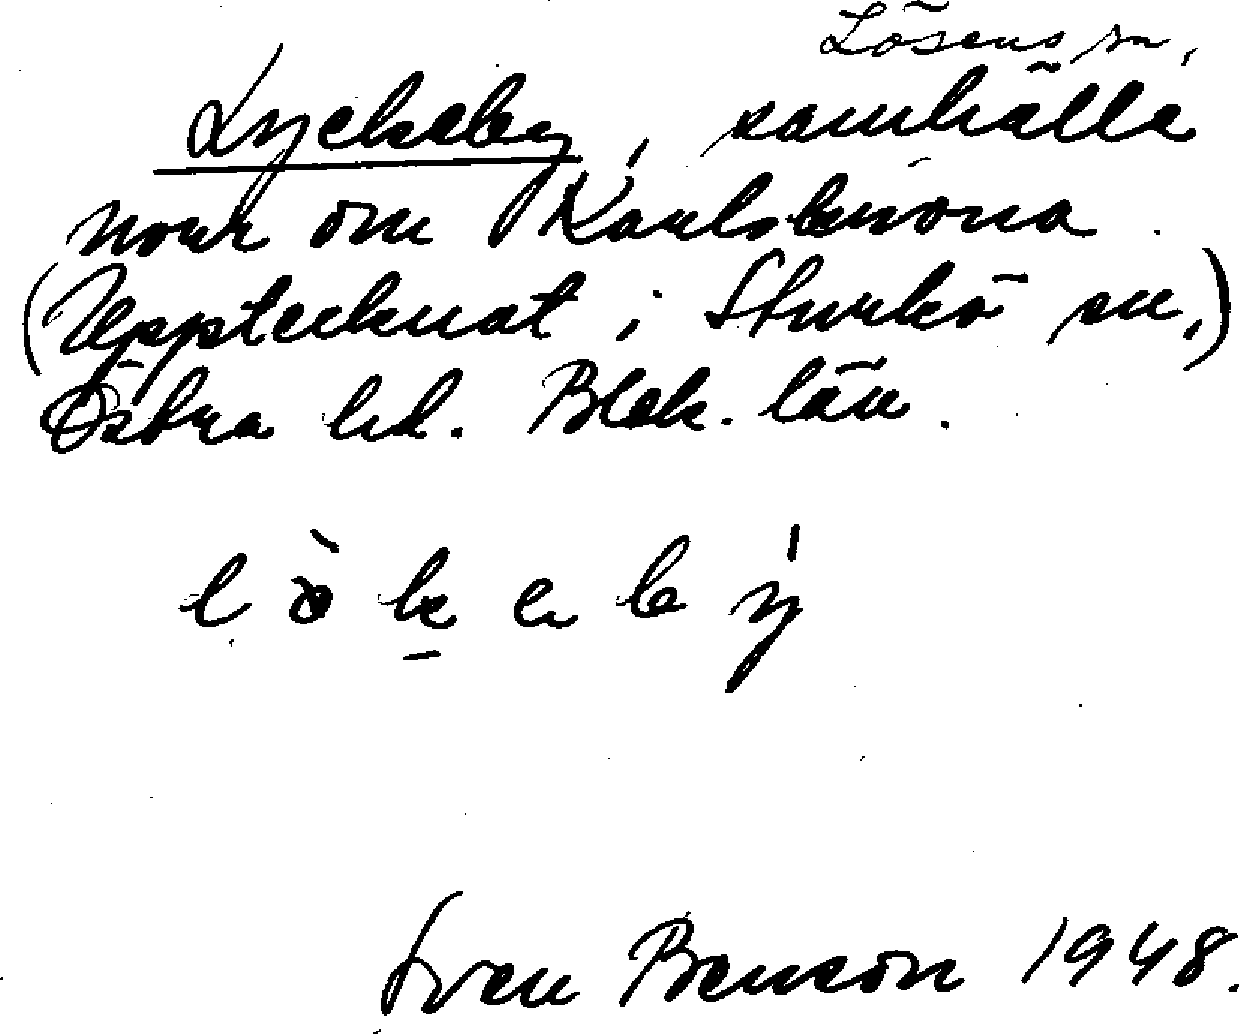 Lösens sn,
Lyckeby, samhälle
norr om Karlskrona.
(Upptecknat i Sturkö sn,)
Östra hd. Blek. län.
Sven Benson 1948.